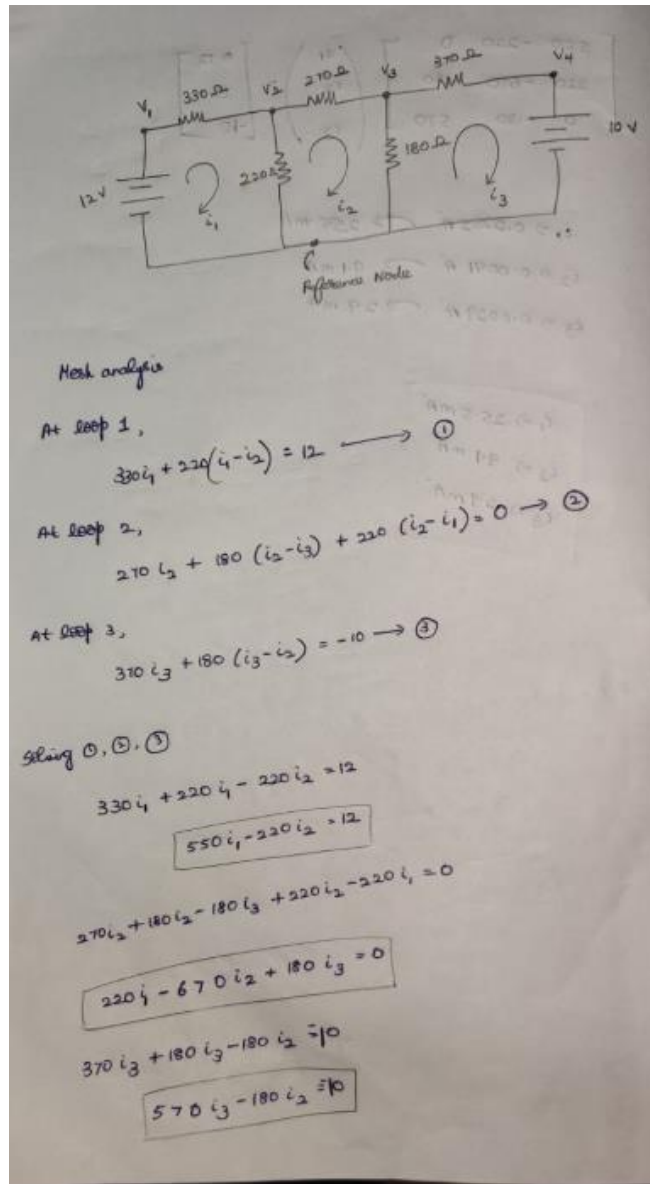 V₁ 330Ω V₂ 270Ω V₃ 370Ω V₄
12V 220Ω 180Ω 10V
i₁ i₂ i₃
Reference Node
Mesh analysis
At loop 1,
330i₁ + 220(i₁-i₂) = 12 → ①
At loop 2,
270 i₂ + 180 (i₂-i₃) + 220 (i₂-i₁) = 0 → ②
At loop 3,
370 i₃ + 180 (i₃-i₂) = -10 → ③
Solving ①, ②, ③
330 i₁ + 220 i₁ - 220 i₂ = 12
550 i₁ - 220 i₂ = 12
270i₂ + 180 i₂ - 180 i₃ + 220 i₂ - 220 i₁ = 0
220 i₁ - 670 i₂ + 180 i₃ = 0
370 i₃ + 180 i₃ - 180 i₂ = -10
570 i₃ - 180 i₂ = -10